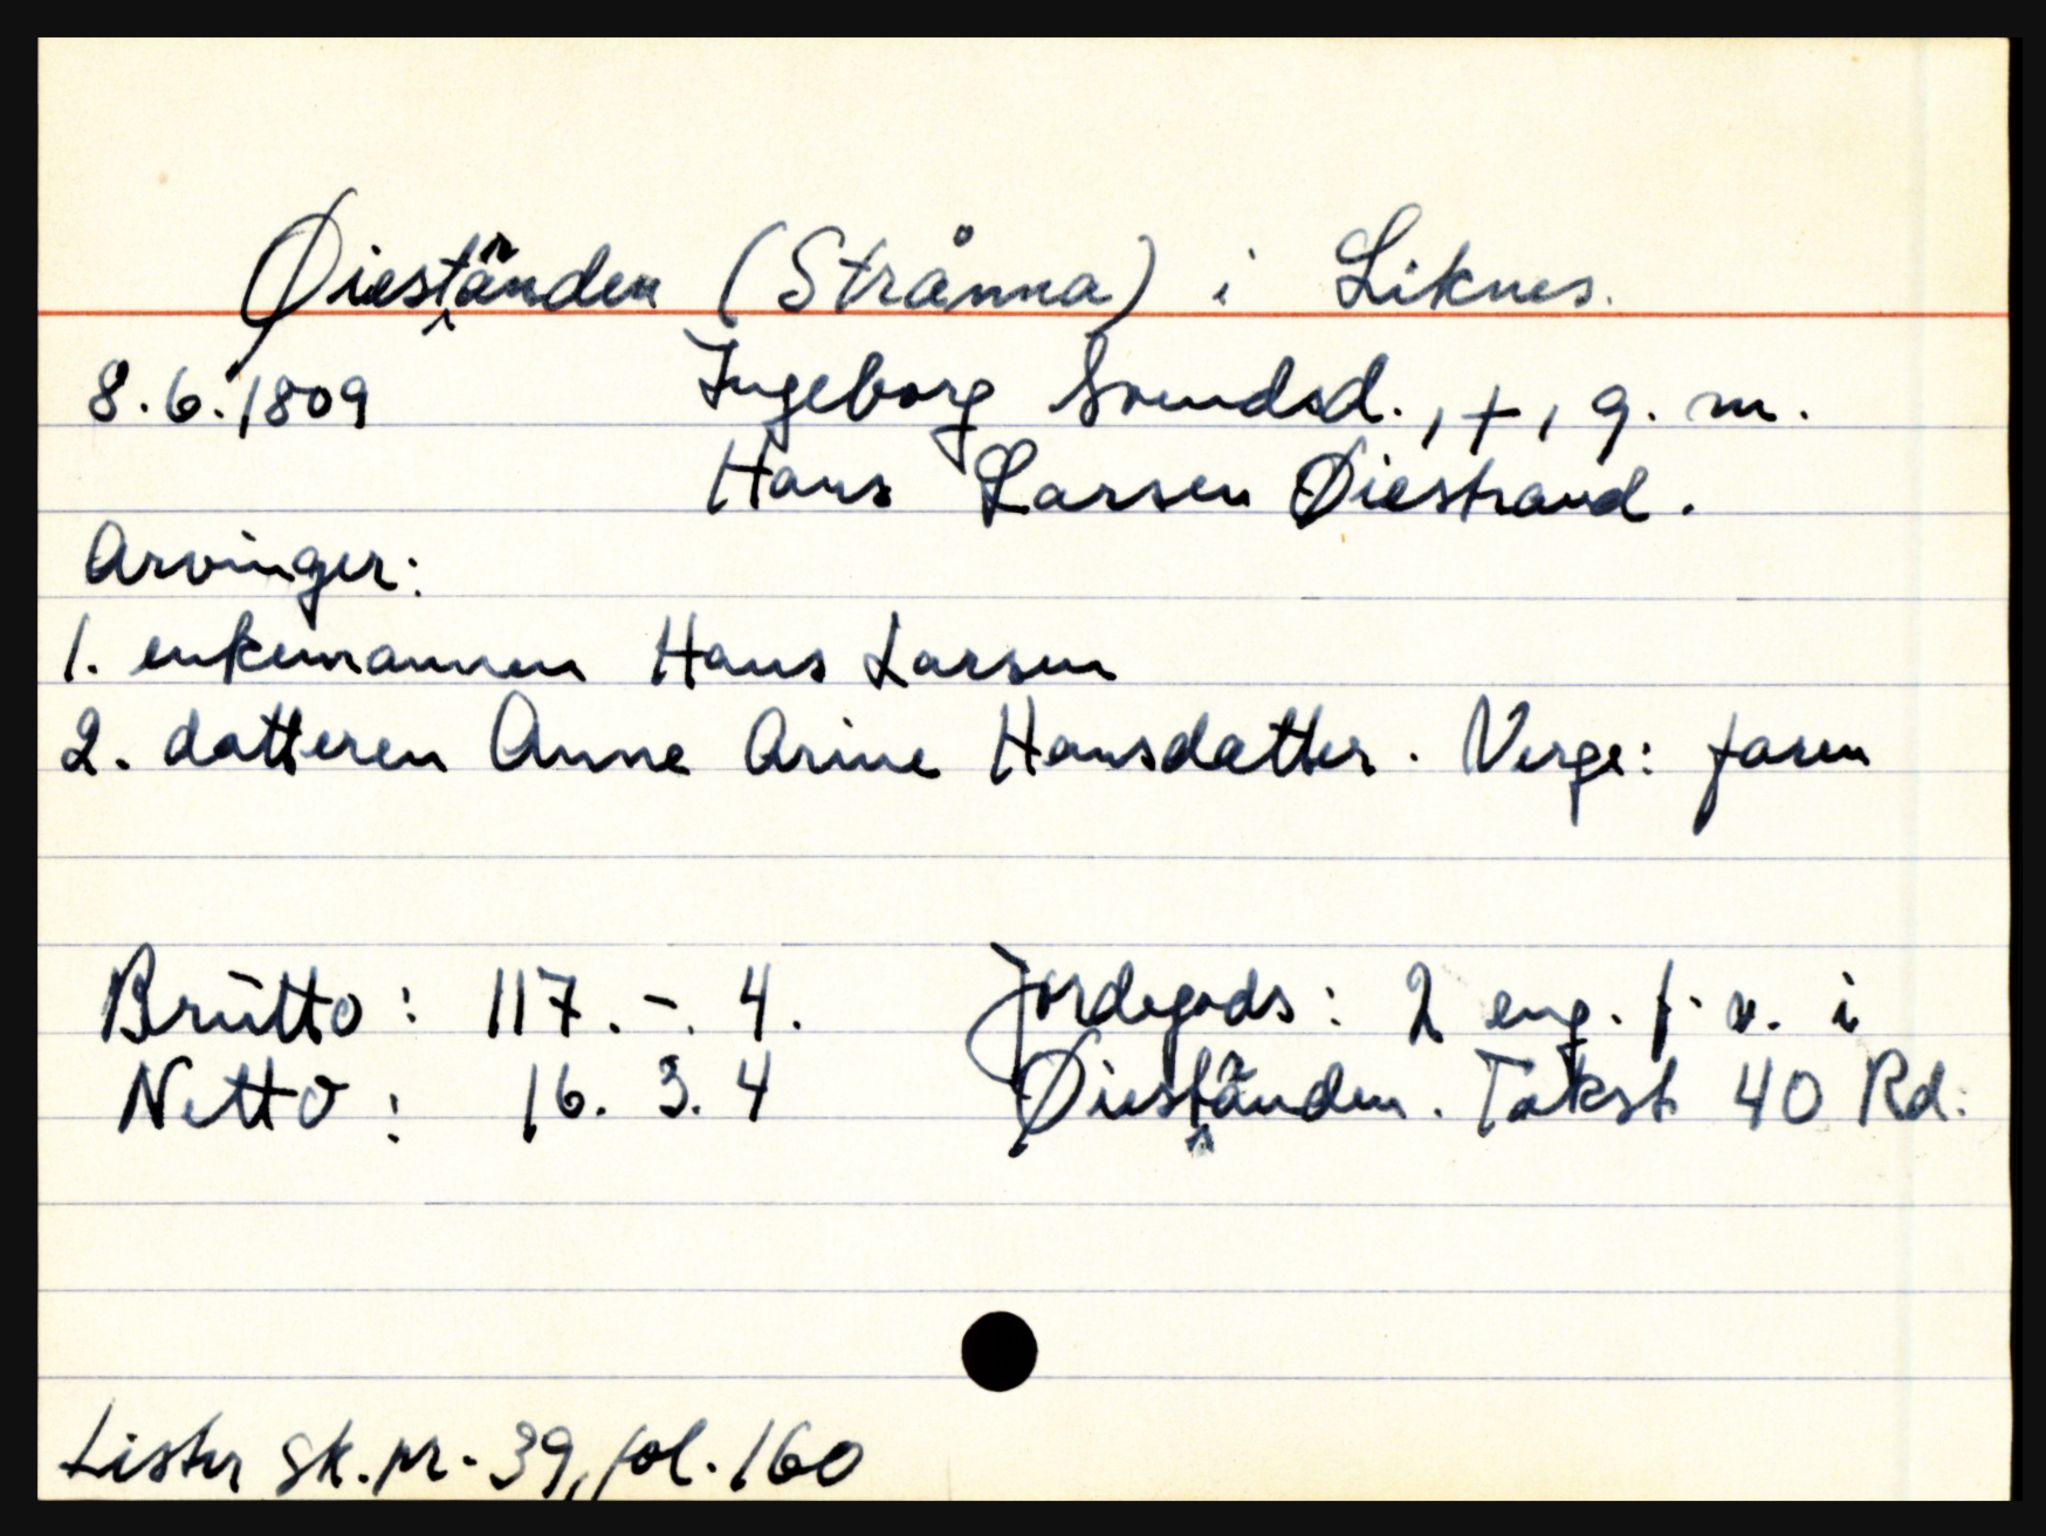 Øiestranden (Strånna) i Liknes.
8.6.1809 Ingeborg Svendsd., +, g. m.
Hans Larsen Øiestrand.
Arvinger:
1. enkemannen Hans Larsen
2. datteren Anne Arine Hansdatter. Verge: faren
Brutto: 117. -. 4. Jordegods: 2 eng. f. v. i
Netto: 16. 3. 4 Øiestranden. Takst 40 Rd.
Lister sk.pr. 39, fol. 160